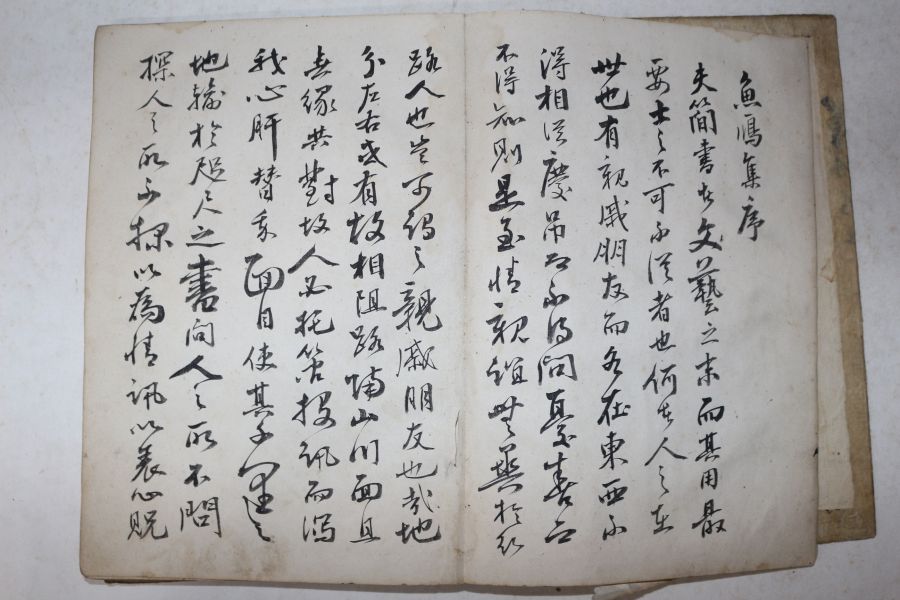 魚鴈集序
夫簡書者文藝之末而其用最
要士之不可不從者也何者人之在
世也有親戚朋友而各在東西不
得相從慶吊而不得問憂喜而
不得知則是至情親誼無異於行
路人也豈可謂之親戚朋友也哉地
分左右或有故相阻路隔山川面且
無緣共對故人必托筆投訊而瀉
我心肝替我面目使其千里之
地輸於咫尺之書問人之所不問
探人之所不探以為情訊以表心貺